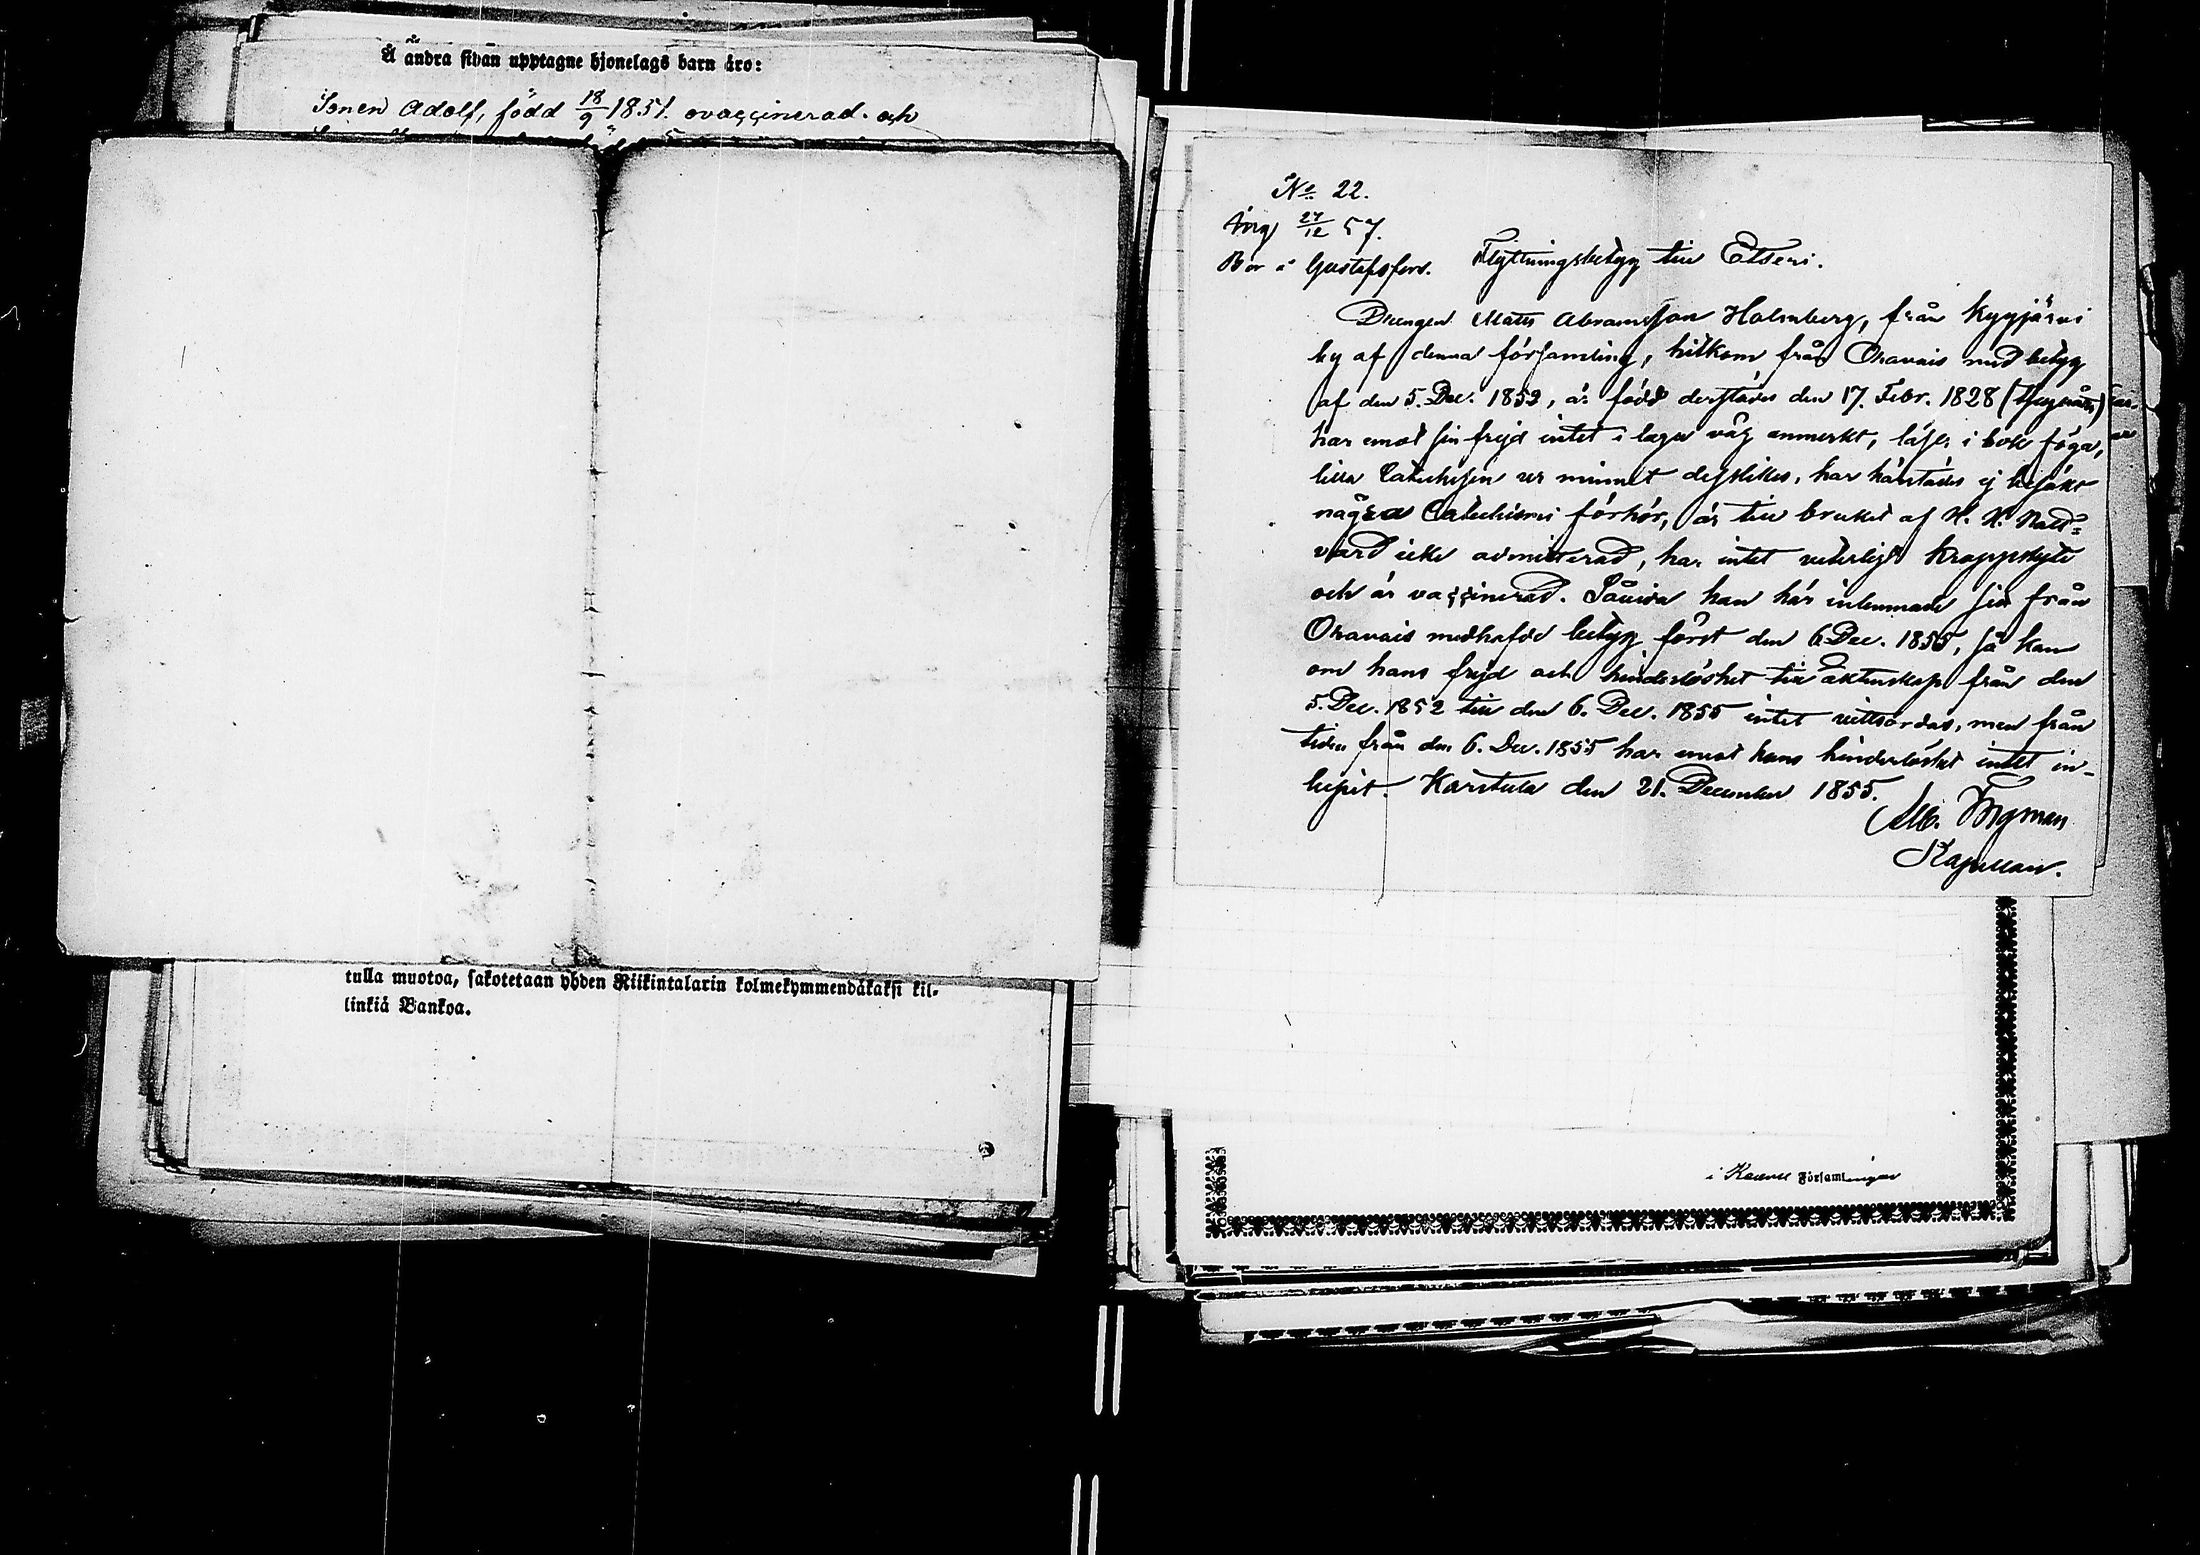 Å andra sidan upptagne hjonelags barn äro:
Sonen Adolf, född 18/9 1851. ovaccinerad. och
tulla muotoa, sakotetaan yhden Riikintalarin kolmekymmendäkaksi kil-
linkiä Bankoa.
No 22.
27/12 57.
Bor i Gustafsfors.
Flyttningsbetyg till Etseri.
Drengen Matts Abramsson Holmberg, från Kyyjärvi
by af denna församling, hitkom från Oravais med betyg
af den 5. Dec. 1852, är född derstädes den 17. Febr. 1828 (tjuguåtta)
har emot sin frejd intet i laga väg anmerkt, läser i bok föga,
lilla Catechesen ur minnet dessliikes, har härstädes ej besökt
några Catechismi förhör, är till bruket af H. H. Natt=
vard icke admitterad, har intet veterligt kroppslyte
och är vaccinerad. Såvida han här inlemnade sin från
Oravais medhafde betyg först den 6. Dec. 1855, så kan
om hans frejd och hinderlöshet till äktenskap från den
5. Dec. 1852 till den 6. Dec. 1855 intet vittsordas, men från
tiden från den 6. Dec. 1855 har emot hans hinderlöshet intet in-
lupit. Karstula den 21. December 1855.
Alb. Ingman
Kapellan.
i Församlingar